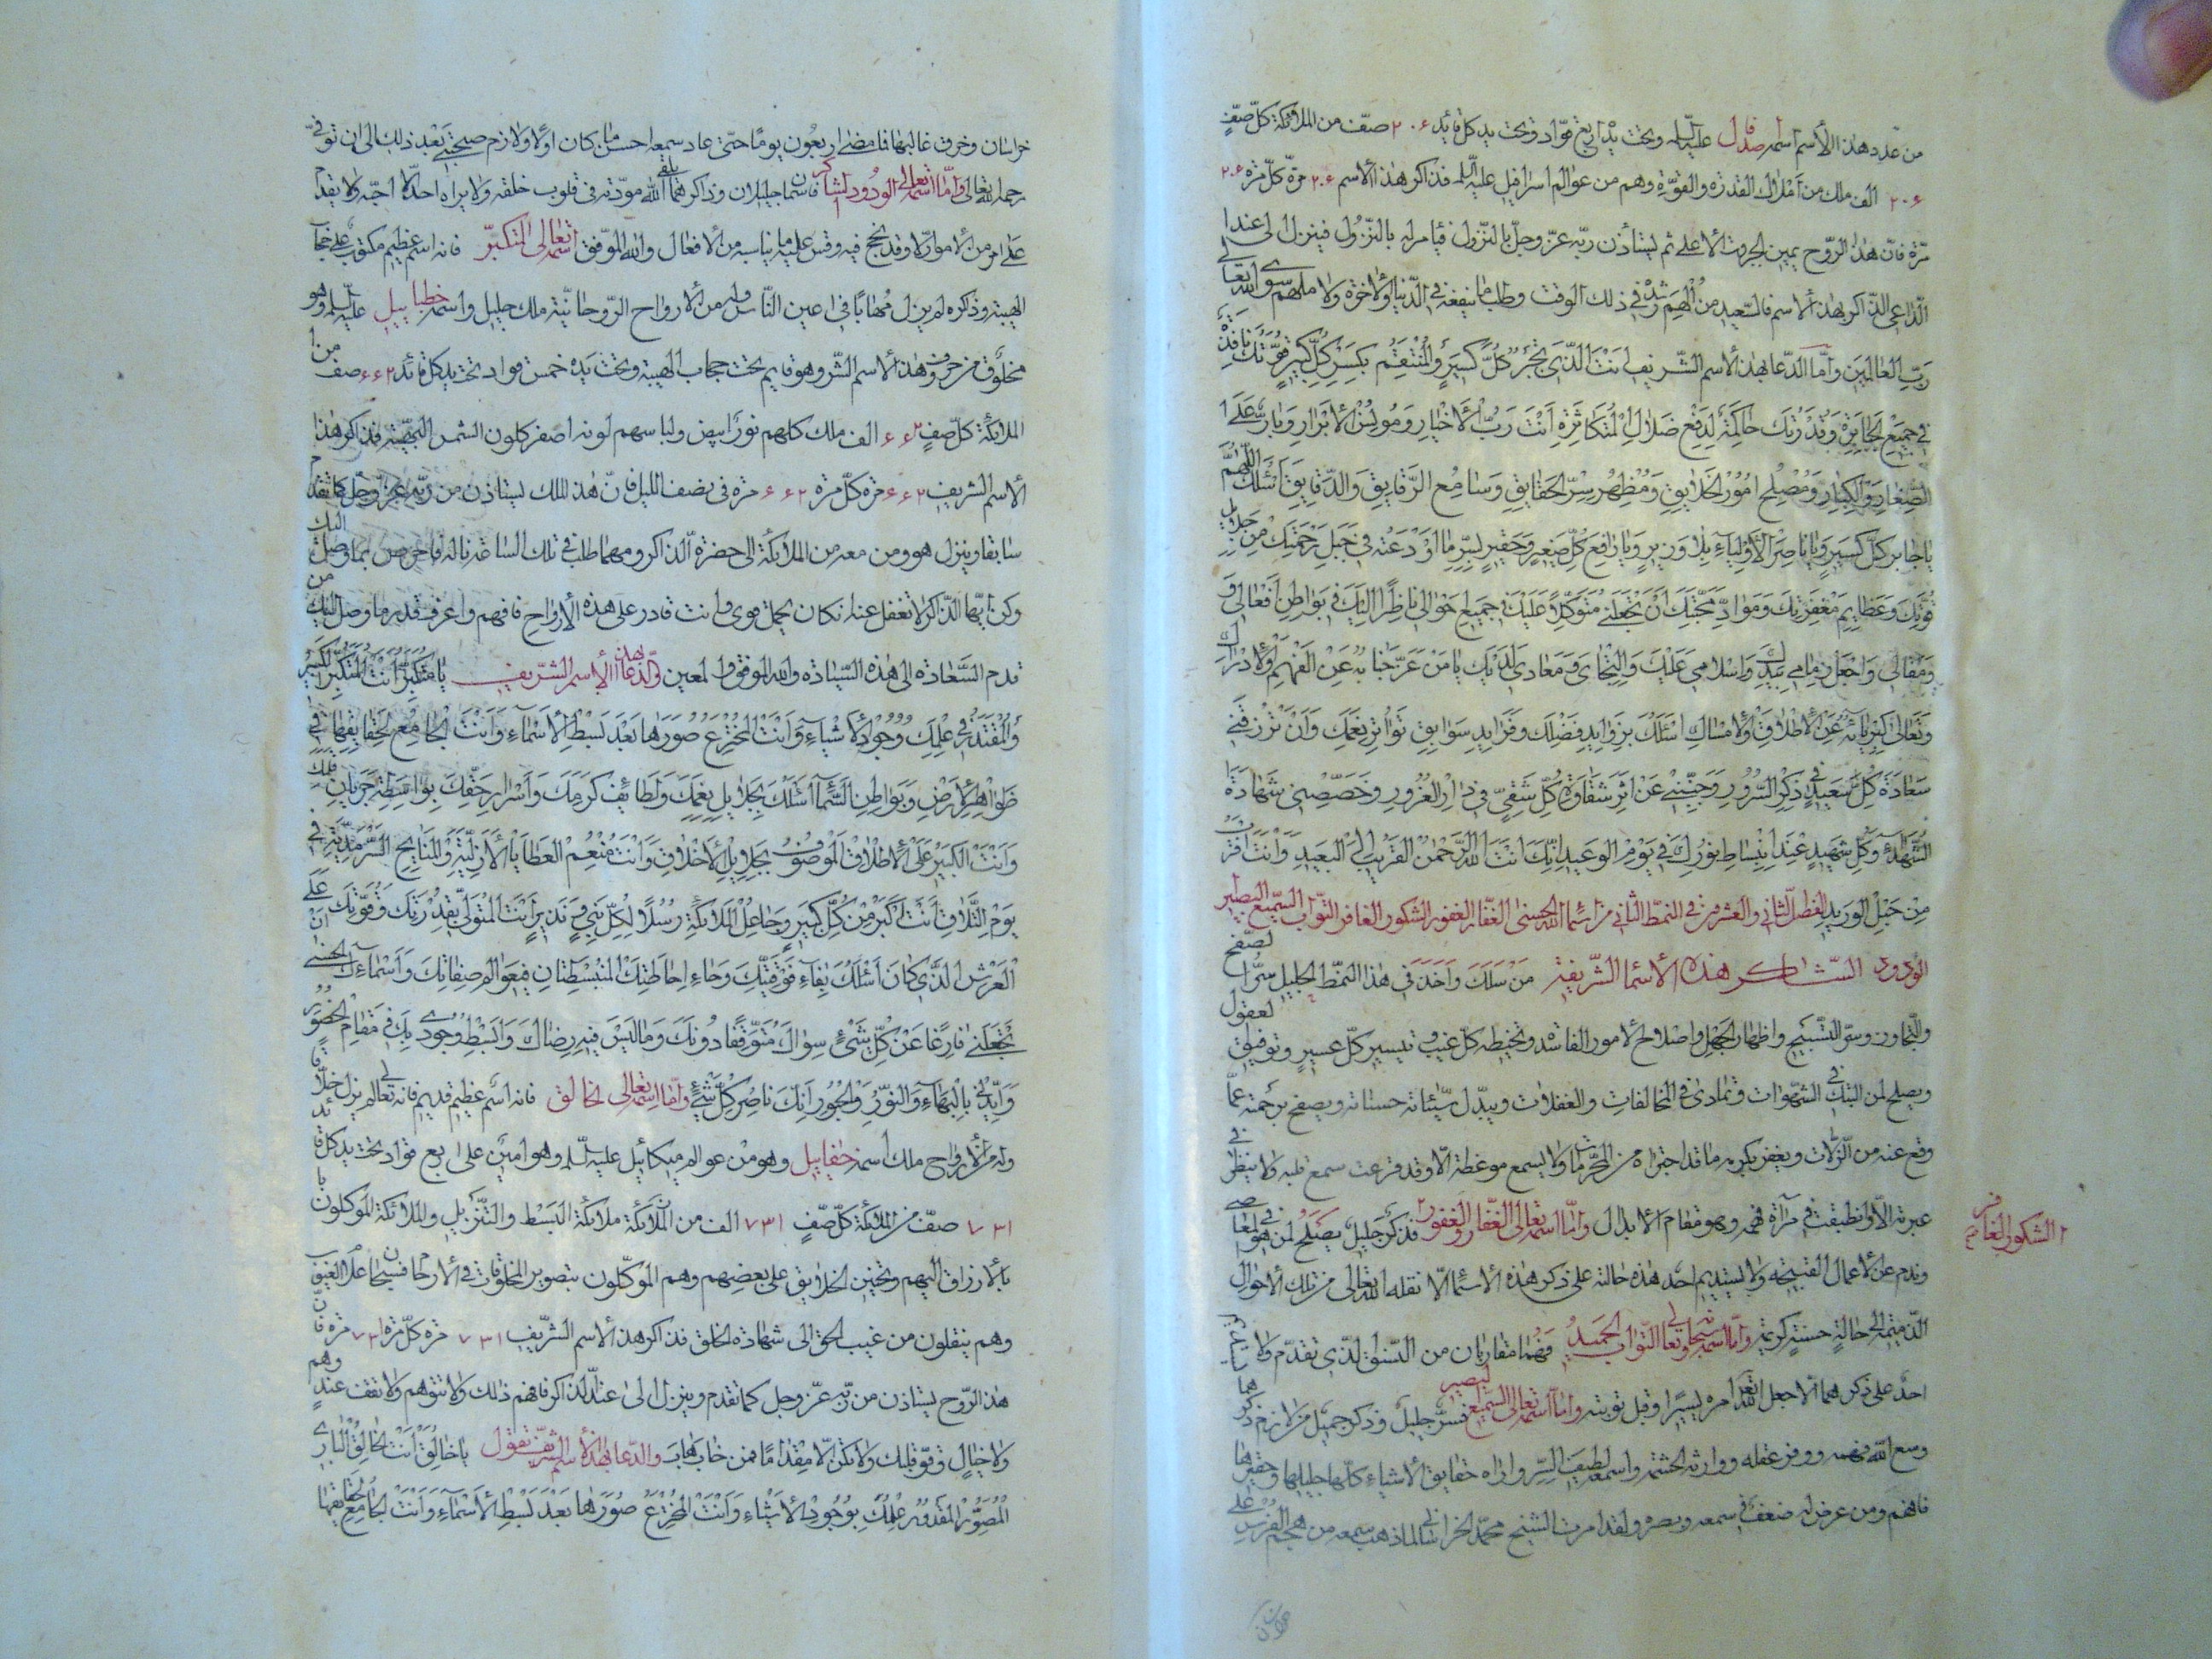 من عدد هذا الأسم اسمه صدفال عليه السلم وتحت يده اربع قواد وتحت يد كل قايد ٢٠٦ صف من الملائكة كل صفٍ
٢٠٦ الف ملك من املاك القدرة والقوة وهم من عوالم اسرافيل عليه السلم فذاكر هذا الاسم ٢٠٦ مرة كل مرة ٢٠٦
مرة فان هذا الروح يمين الجروت الاعلى ثم يستأذن ربه عز وجل بالنزول فيأمر له بالنزول فينزل الى عند
الداعى الذاكر بهذا الاسم فالسعيد من ألهم رشده فى ذلك الوقت وطلب ما ينفعه فى الدنيا والاخرة ولا ملهم سوى الله تعالى
رب العالمين وأما الدعا بهذا الاسم الشريف انت الذى تجبر كل كسير والمنتقم بكسر كل كبير قوتك نافذة
فى جميع الجبابرة وقدرتك حاكمة لدفع ضلال المتكاثرة أنت رب الاخيار ومونس الأبرار وبار على
الصغار والكبار ومصلح امور الخلايق ومظهر سر الحقايق وسامع الرقايق والدقايق اسئلك اللهم
يا جابر كل كسير ويا ناصر الأولياء بلا وزير ويا رافع كل صغير وحقير لسر ما اودعته فى جبل رحمتك من جلال
قوتك وعظايم مغفرتك ومواد محبتك ان تجعلنى متوكلا عليك فى جميع احوالى ناظرا اليك فى بواطن أفعالى و
ومقالى واجعل زمامى بيدك واسلامى عليك والتجائى ومعادى لديك يا من عز جنابه عن الفهم والادراك
وتعالى كبريائه عن الاطلاق والامساك اسئلك بزوايد فضلك وفرايد سوابق تواتر نعمك وان ترزقنى
سعادة كل سعيد فى ذكر السرور وجنبنى عن اثر شقاوة كل شقى فى دار الغرور وخصصنى شهادة
الشهداء وكل شهيد عند انبساط نورك فى يوم الوعيد انك انت الله الرحمن القريب البعيد وانت اقرب
من حبل الوريد الفصل الثانى والعشر من فى النمط الثانى من اسما الله الحسنى الغفار الغفور الشكور الغافر التواب السميع البصير
الودود الشاكر هذه الاسما الشريفة من سلك واحد فى هذا النمط الجليل سر الصفح
والتجاوز وسر التسبيح واظهار الجهل واصلاح الامور الفاسدة وتيسير كل عسير وتوفيق العقول
ويصلح لمن انهمك فى الشهوات وتمادى فى المخالفات والغفلات ويبدل سيئاته حسناته ويصفح برحمته عما
وقع عنه من الزلات ويغفر بكرمه ما قد اجتراه من المحرمات ولا يسمع موعظة الا وقد قرعت سمع قلبه ولا ينظر فى
عبرته الا وانطبقت فى مرآة فهمه وهو مقام الابدال واما اسمه تعالى الغفار والغفور فذكر جليل يصلح لمن هو فى المعاصى
الشكور الغافر
وندم عن الاعمال القبيحة ولا يستديم احد هذه حالته على ذكر هذه الاسما الا نقله الله تعالى من تلك الاحوال
الذميمة الى حالة حسنة كريمة واما اسمه سبحانه وتعالى التواب الحميد فهما متقاربان من النسق الذى تقدم ولا
احد على ذكرهما الا جعل الله امره يسيرا وقبل توبته واما اسمه تعالى السميع البصير فسر جليل وذكر جميل من لازم ذكرهما
وسع الله فهمه ووفر عقله واورثه الحشمة واسمعه لطيف السر واراه حقايق الاشياء كلها جليلها وحقيرها
فافهم ومن عرض له ضعف فى سمعه وبصره ولقد امرت الشيخ محمد الخراسانى لما ذهب سمعه من هجم الفرس على
خراسان وخرق غالبها فما مضى اربعون يوما حتى عاد سمعه احسن ما كان اولا ولازم صحبتى بعد ذلك الى ان توفى
رحمه الله تعالى واما اسمه تعالى الودود الشاكر فاسمان جليلان وذاكرهما يلقى الله مودته فى قلوب خلقه ولا يراه احد الا احبه ولا يقدم
على امر من الامور الا وقد نجح فيه وقس عليه ما يناسبه من الافعال والله الموفق اسمه تعالى المتكبر فانه اسم عظيم مكتوب على حجاب
الهيبة وذاكره لم يزل مهابا فى اعين الناس وله من الارواح الروحانية ملك جليل واسمه خطيابيل عليه السلم وهو
مخلوق من حروف هذا الاسم الشر وهو قايم تحت حجاب الهيبة وتحت يده خمس قواد تحت يد كل قائد ٦٦٢ صف من
الملائكة كل صفٍ ٦٦٢ الف ملك كلهم نور ابيض ولباسهم لونه اصفر كلون الشمس البهية فذاكر هذا
الاسم الشريف ٦٦٢ مرة كل مرة ٦٦٢ مرة فى نصف الليل فان هذا الملك يستاذن من ربه عز وجل كما تقدم
سابقا وينزل هو ومن معه من الملائكة الى حضرة الذاكر ومهما طلب فى تلك الساعة ناله فاحرص بما وصل اليك
وكن ايها الذاكر لا تغفل عنه تكان تحمل هوى وانت قادر على هذه الارواح فافهم واعرف قدر ما وصل اليك من
قدم السعادة الى هذه السيادة والله الموفق والمعين والدعا بهذا الاسم الشريف يا متكبر أنت المتكبر الكبير
والمقتدر فى علمك وجود الاشياء وانت المخترع صورها بعد بسط الاسماء وانت الجامع لحقايقها فى
ظواهر الارض وبواطن السما اسئلك بجلايل نعمك ولطائف كرمك وأسرار حقك بواسطة جريان فلك
وانت الكبير على الاطلاق الموصوف بجليل الاخلاق وانت منعم العطايا الازلية والمنايح السرمدية فى
يوم التلاق انت اكبر من كل كبير وجاعل الملائكة رسلا لكل نبى ونذير انت المتولى بقدرتك وقوتك على
العرش الذى كان أسئلك بفاء فوقيتك وحاء احاطتك المنبسطتان فى عوالم صفاتك واسماءك الحسنى ان
تجعلنى فارغا عن كل شئ سواك مترفقا دونك وما ليس فيه رضاك وابسط وجودى بك فى مقام الحضور
وأيدنى بالبهاء والنور والحبور انك ناصر كل شئ واما اسمه تعالى الخالق فانه اسم عظيم قديم فانه تعالى لم يزل خلاقا
وله من الارواح ملك اسمه حفياييل وهو من عوالم ميكائيل عليه السلم وهو امين على اربع قواد تحت يد كل قائد
٧٣١ صف من الملائكة كل صفٍ ٧٣١ الف من الملائكة ملائكة البسط والتنزيل والملائكة الموكلون
بالارزاق اليهم وتحنين الخلايق على بعضهم وهم الموكلون بتصوير المخلوقات فى الارحام فسبحان علام الغيوب
وهم ينقلون من غيب الحق الى شهادة الخلق فذاكر هذا الاسم الشريف ٧٣١ مرة كل مرة ٧٣١ مرة فان
هذا الروح يستاذن من ربه عز وجل كما تقدم وينزل الى عند الذاكر فافهم ذلك ولا تتوهم ولا تقف عند وهم
ولا خيال وقو قلبك ولا تكن الا مقداما فمن خاب هاب والدعا بهذا الاسم الشريف تقول يا خالق انت الخالق البارئ
المصور المقدور علمك بوجود الاشياء وانت المخترع صورها بعد بسط الاسماء وانت الجامع لحقايقها